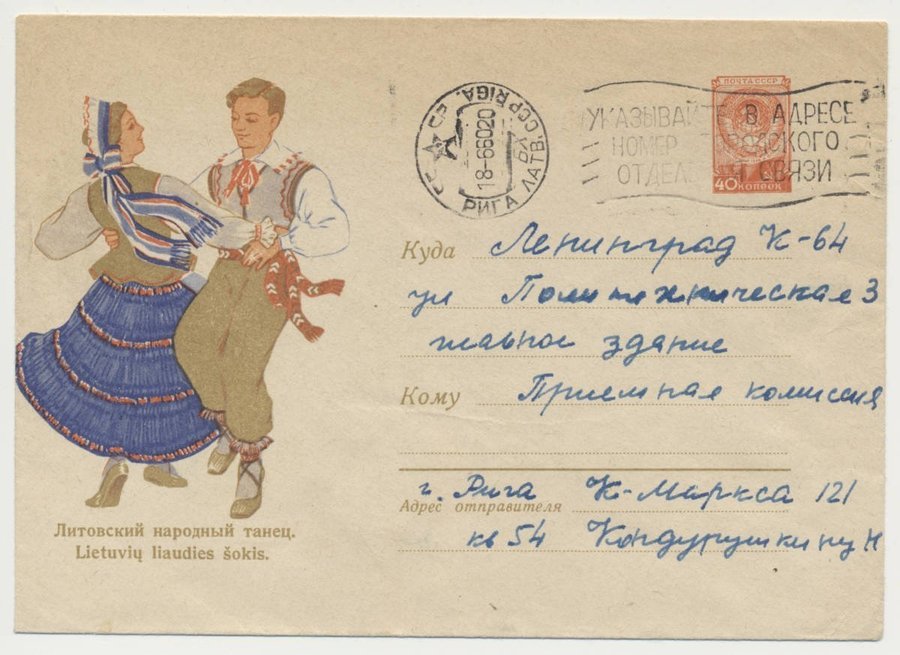 ПОЧТА СССР
40 КОПЕЕК
УКАЗЫВАЙТЕ В АДРЕСЕ
НОМЕР ГОРОДСКОГО
СВЯЗИ
РИГА ЛАТВ. ССР RIGA.
18-66020
Куда Ленинград К-64
ул Политехническая 3
главное здание
Кому Приемная комиссия
г. Рига К-Маркса 121
Адрес отправителя
кв 54 Кондурушкину Н
Литовский народный танец.
Lietuvių liaudies šokis.